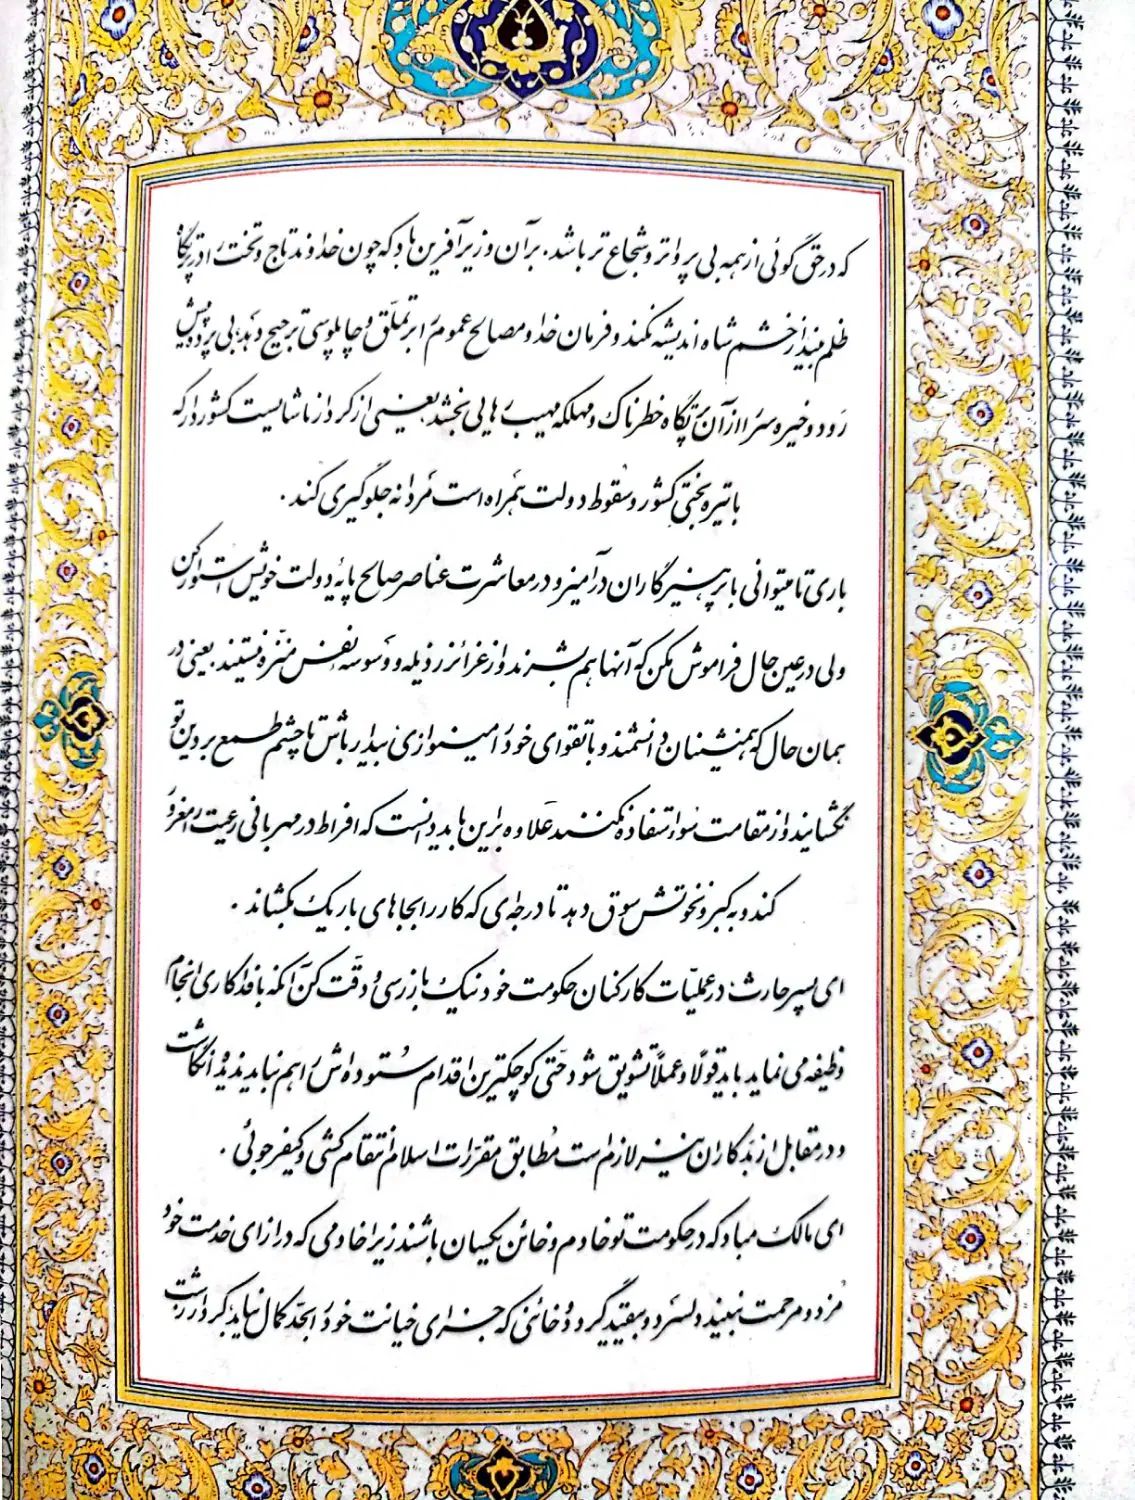 که در حق گوئی از همه بی پرواتر و شجاع تر باشد. بر آن وزیر آفرین باد که چون خداوند تاج و تخت را در پرتگاه
ظلم بیند از خشم شاه اندیشه نکند و فرمان خدا و مصالح عموم را بر تملّق و چاپلوسی ترجیح دهد، بی پرده پیش
رَود و خیره سر را از آن پرتگاه خطرناک و مهلکه مهیب رهایی بخشد یعنی از کردار ناشایست کشوردار که
با تیره بختی کشور و سقوط دولت همراه است مردانه جلوگیری کند.
باری تا میتوانی با پرهیزگاران درآمیز و در معاشرت عناصر صالح پایهٔ دولت خویش استوار کن
ولی در عین حال فراموش مکن که آنها هم بشرند و از غرائز رذیله و وسوسه نفس منزّه نیستند. یعنی در
همان حال که همنشینان دانشمند و با تقوای خود را مینوازی بیدار باش تا چشم طمع بر دین تو
نگشایند و از مقامت سوء استفاده نکنند عَلاوه بر این باید دانست که افراط در مهربانی رعیت را مغرور
کند و به کبر و نخوتش سوق دهد تا درجه ای که کار را بجاهای باریک بکشاند.
ای پسر حارث: در عملیّات کارکنان حکومت خود نیک بازرسی و دقّت کن آنکه با فداکاری انجام
وظیفه می نماید باید قولاً و عملاً تشویق شود حتّی کوچکترین اقدام ستوده اش را هم نباید ندیده انگاشت
و در مقابل از بدکاران نیز لازم است مُطابق مقررات اسلام انتقام کشی و کیفرجوئی.
ای مالک مباد که در حکومت تو خادم و خائن یکسان باشند زیرا خادمی که در ازای خدمت خود
مُزد و مرحمت نبیند دلسرد و بیقید گردد و خائنی که جزای خیانت خود را بحد کمال نیابد بکردار زشت